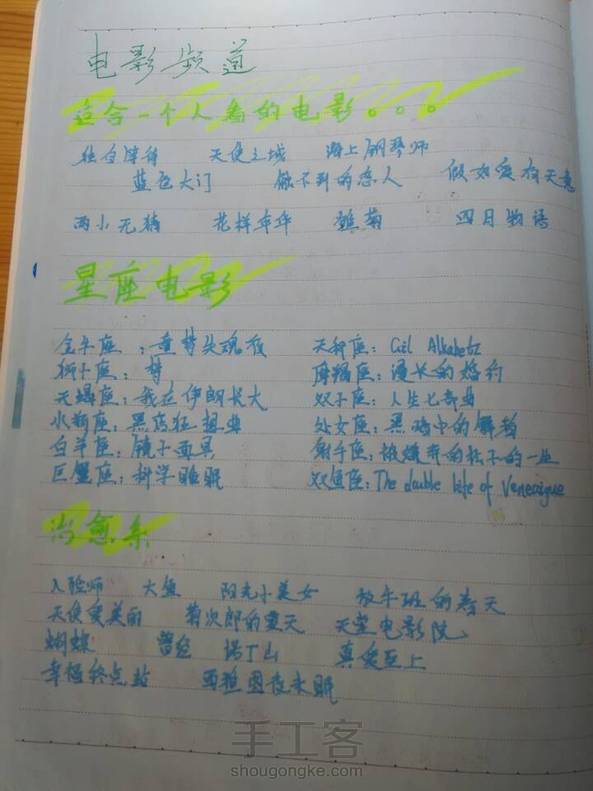 电影频道
适合一个人看的电影。。。
独自等待 天使之城 海上钢琴师
蓝色大门 触不到的恋人 假如爱有天意
两小无猜 花样年华 雏菊 四月物语
星座电影
金牛座：童梦失魂夜 天秤座：
狮子座：梦 摩羯座：漫长的婚约
天蝎座：我在伊朗长大 双子座：人生七部曲
水瓶座：黑店狂想曲 处女座：黑暗中的舞者
白羊座：镜子面具 射手座：被嫌弃的松子的一生
巨蟹座：科学睡眠 双鱼座：The double life of
治愈系
入殓师 大鱼 阳光小美女 放牛班的春天
天使爱美丽 菊次郎的夏天 天堂电影院
蝴蝶 曾经 诺丁山 真爱至上
幸福终点站 西雅图夜未眠
手工客
shougongke.com